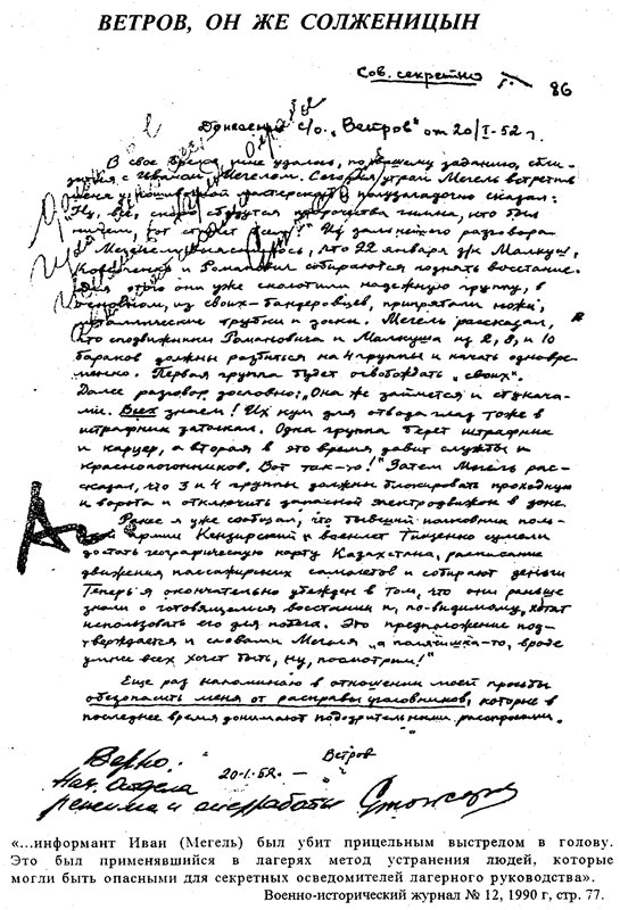 ВЕТРОВ, ОН ЖЕ СОЛЖЕНИЦЫН
Сов. секретно
86
Донесение с/о „Ветров" от 20/I-52 г.
В свое время мне удалось, по вашему заданию, сбли-
зиться с Иваном Мегелом. Сегодня утром Мегель встретил
меня у пошивочной мастерской и полузагадочно сказал:
"Ну, все, скоро сбудутся пророчества гимна, кто был
ничем, тот станет всем!" Из дальнейшего разговора
с Мегелем выяснилось, что 22 января з/к Малкуш,
и Романович собираются поднять восстание.
Для этого они уже сколотили надежную группу, в
основном, из своих-бандеровцев, припрятали ножи,
металлические трубки и доски. Мегель рассказал,
что сподвижники Романовича и Малкуша из 2, 8, и 10
бараков должны разбиться на 4 группы и начать одновре-
менно. Первая группа будет освобождать „своих".
Далее разговор дословно: „Она же займется и стукача-
ми. Всех знаем! Их кум для отвода глаз тоже в
штрафник затолкал. Одна группа берет штрафник
и карцер, а вторая в это время давит службы и
краснопогонников. Вот так-то!" Затем Мегель рас-
сказал, что 3 и 4 группы должны блокировать проходную
и ворота и отключить запасной электродвижок в зоне.
Ранее я уже сообщал, что бывший полковник поль-
ской армии Кензирский и военлет Тищенко сумели
достать географическую карту Казахстана, расписание
движения пассажирских самолетов и собирают деньги
Теперь я окончательно убежден в том, что они раньше
знали о готовящемся восстании и, по-видимому, хотят
использовать его для побега. Это предположение под-
тверждается и словами Мегеля „а полячишка-то, вроде
умнее всех хочет быть, ну, посмотрим!"
Еще раз напоминаю в отношении моей просьбы
обезопасить меня от расправы уголовников, которые в
последнее время донимают подозрительными расспросами.
Ветров
20.1.52
Верно:
Нач. отдела
режима и оперработы
«...информант Иван (Мегель) был убит прицельным выстрелом в голову.
Это был применявшийся в лагерях метод устранения людей, которые
могли быть опасными для секретных осведомителей лагерного руководства».
Военно-исторический журнал № 12, 1990 г, стр. 77.